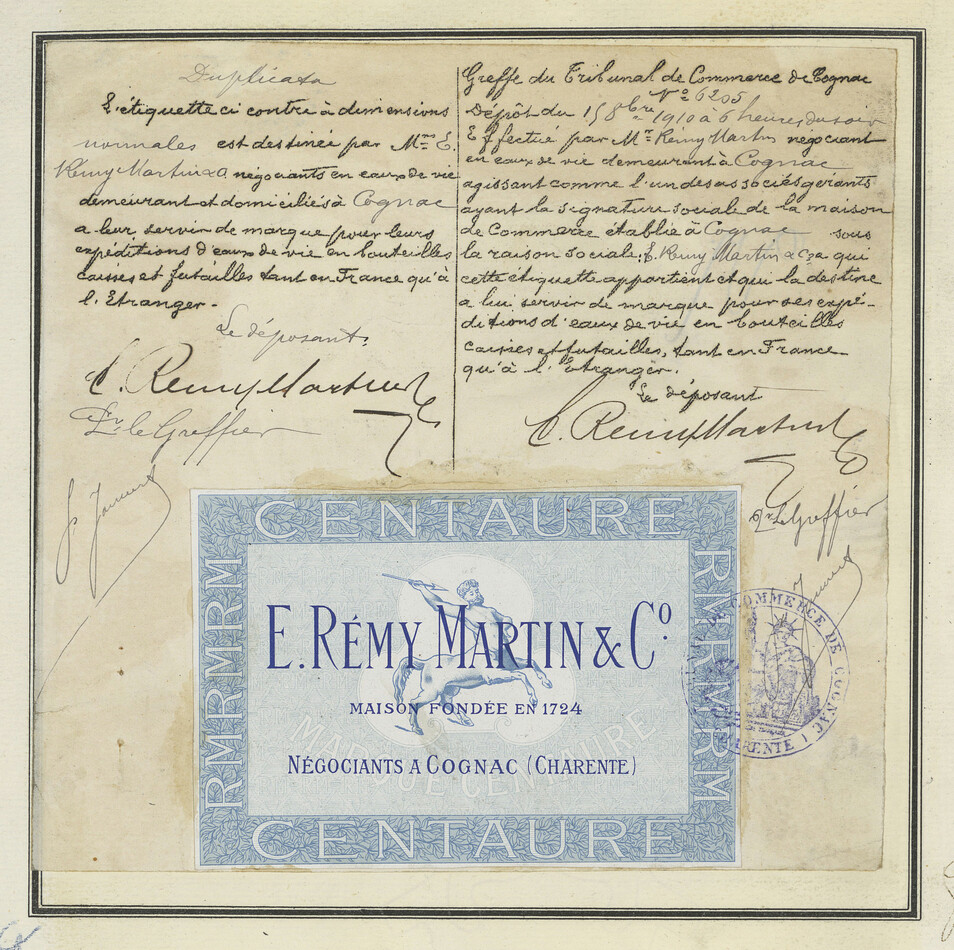 Duplicata
L'étiquette ci contre à dimensions
normales est destinée par Mrs E.
Rémy Martin & Co négociants en eaux de vie
demeurant et domiciliés à Cognac
a leur servir de marque pour leurs
expéditions d'eaux de vie en bouteilles
caisses et futailles tant en France qu'à
l'Etranger -
Le déposant.
E. Remy Martin & Co
Pr le Greffier
Greffe du Tribunal de Commerce de Cognac
No 6205
Dépôt du 15 8bre 1910 a 6 heures du soir
Effectué par Mr Rémy Martin négociant
en eaux de vie demeurant à Cognac
agissant comme l'un des associés gérants
ayant la signature sociale de la maison
de Commerce établie à Cognac sous
la raison sociale: E. Rémy Martin & Co a qui
cette étiquette appartient et qui la destine
a lui servir de marque pour ses expé-
ditions d'eaux de vie en bouteilles
caisses et futailles, tant en France
qu'à l'Etranger.
Le déposant
E. Remy Martin & Co
Pr le Greffier
CENTAURE
RMRMRM
RMRMRM
E. RÉMY MARTIN & Co.
MAISON FONDÉE EN 1724
MARQUE CENTAURE
NÉGOCIANTS A COGNAC (CHARENTE)
CENTAURE
COMMERCE DE COGNAC
CHARENTE